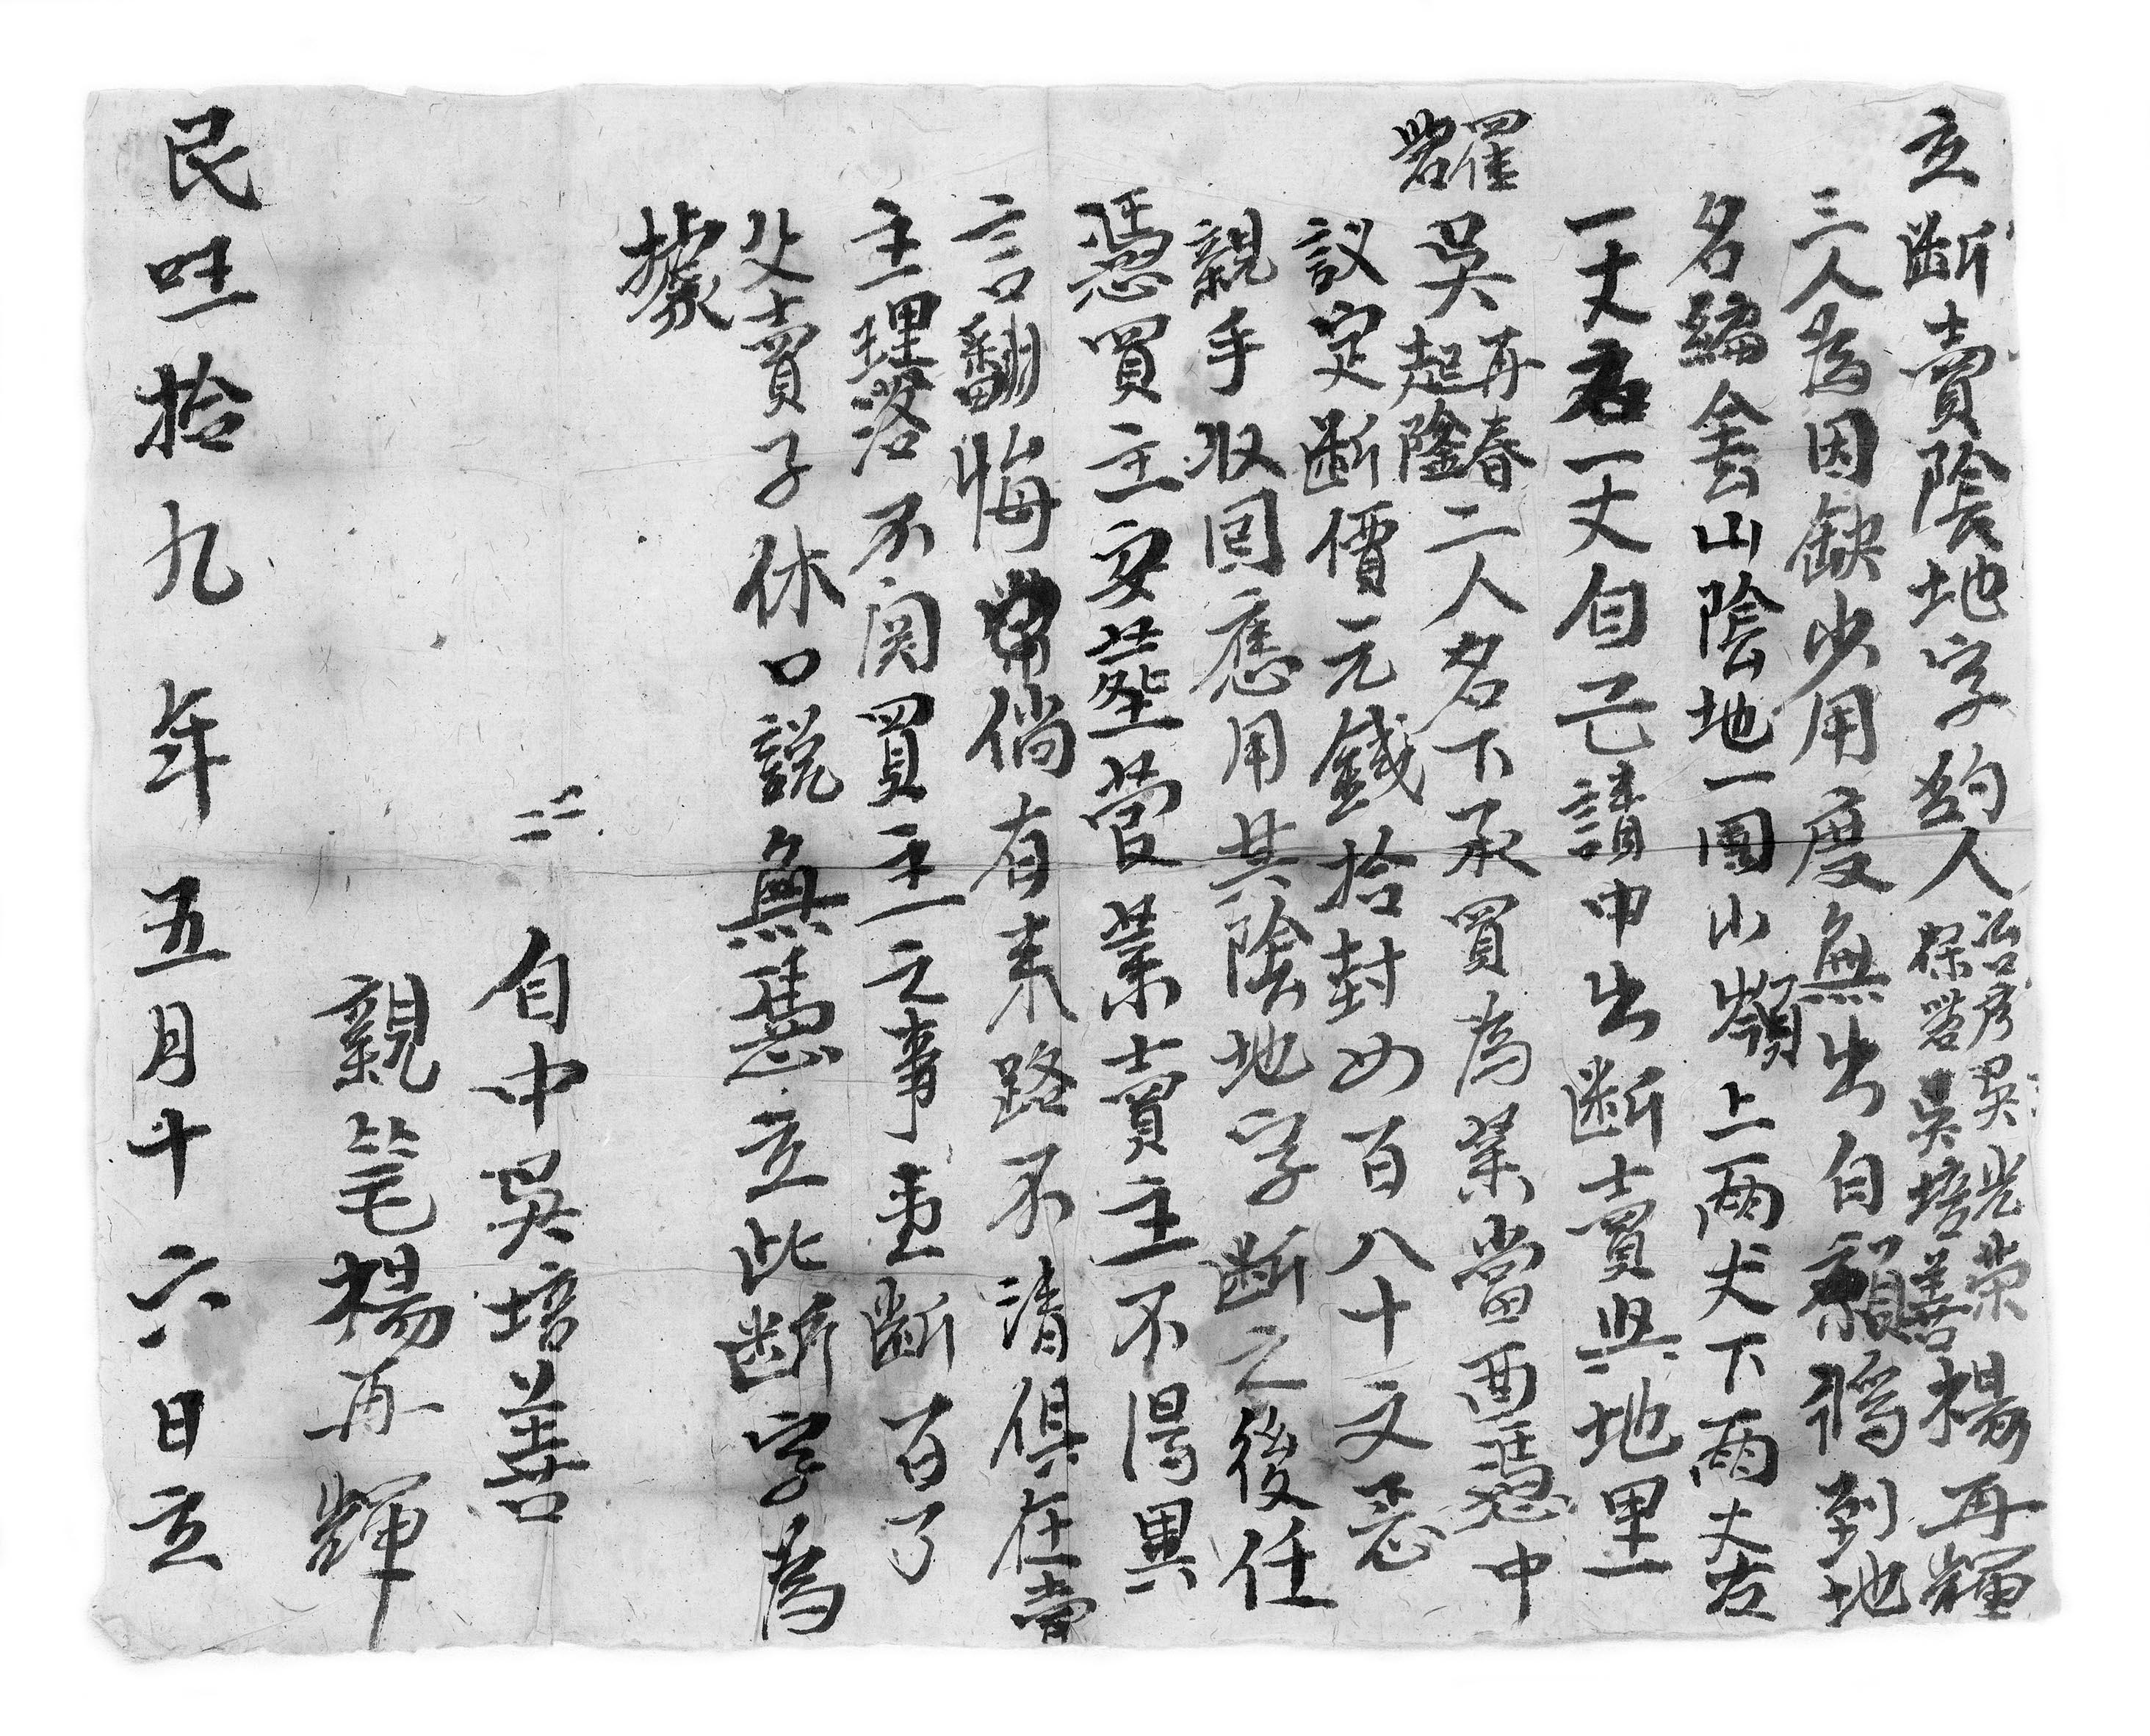 立斷賣陰地字約人治彥吳光榮保岩吳培善楊再輝
三人為因缺少用度無出自願將到地
名編金山陰地一團小嶺上兩丈下兩丈左
一丈右一丈自己請中出斷賣與地里
羅岩吳再春起隆二人名下承買為業當面憑中
議定斷價元錢拾封四百八十文悉
親手收回應用其陰地字斷之後任
憑買主安塟管業賣主不得異
言翻悔倘有来路不清俱在賣
主理落不関買主之事壹斷百了
父賣子休口説無憑立此斷字為
據
自中吳培善
親笔楊再輝
民国拾九年五月十六日立